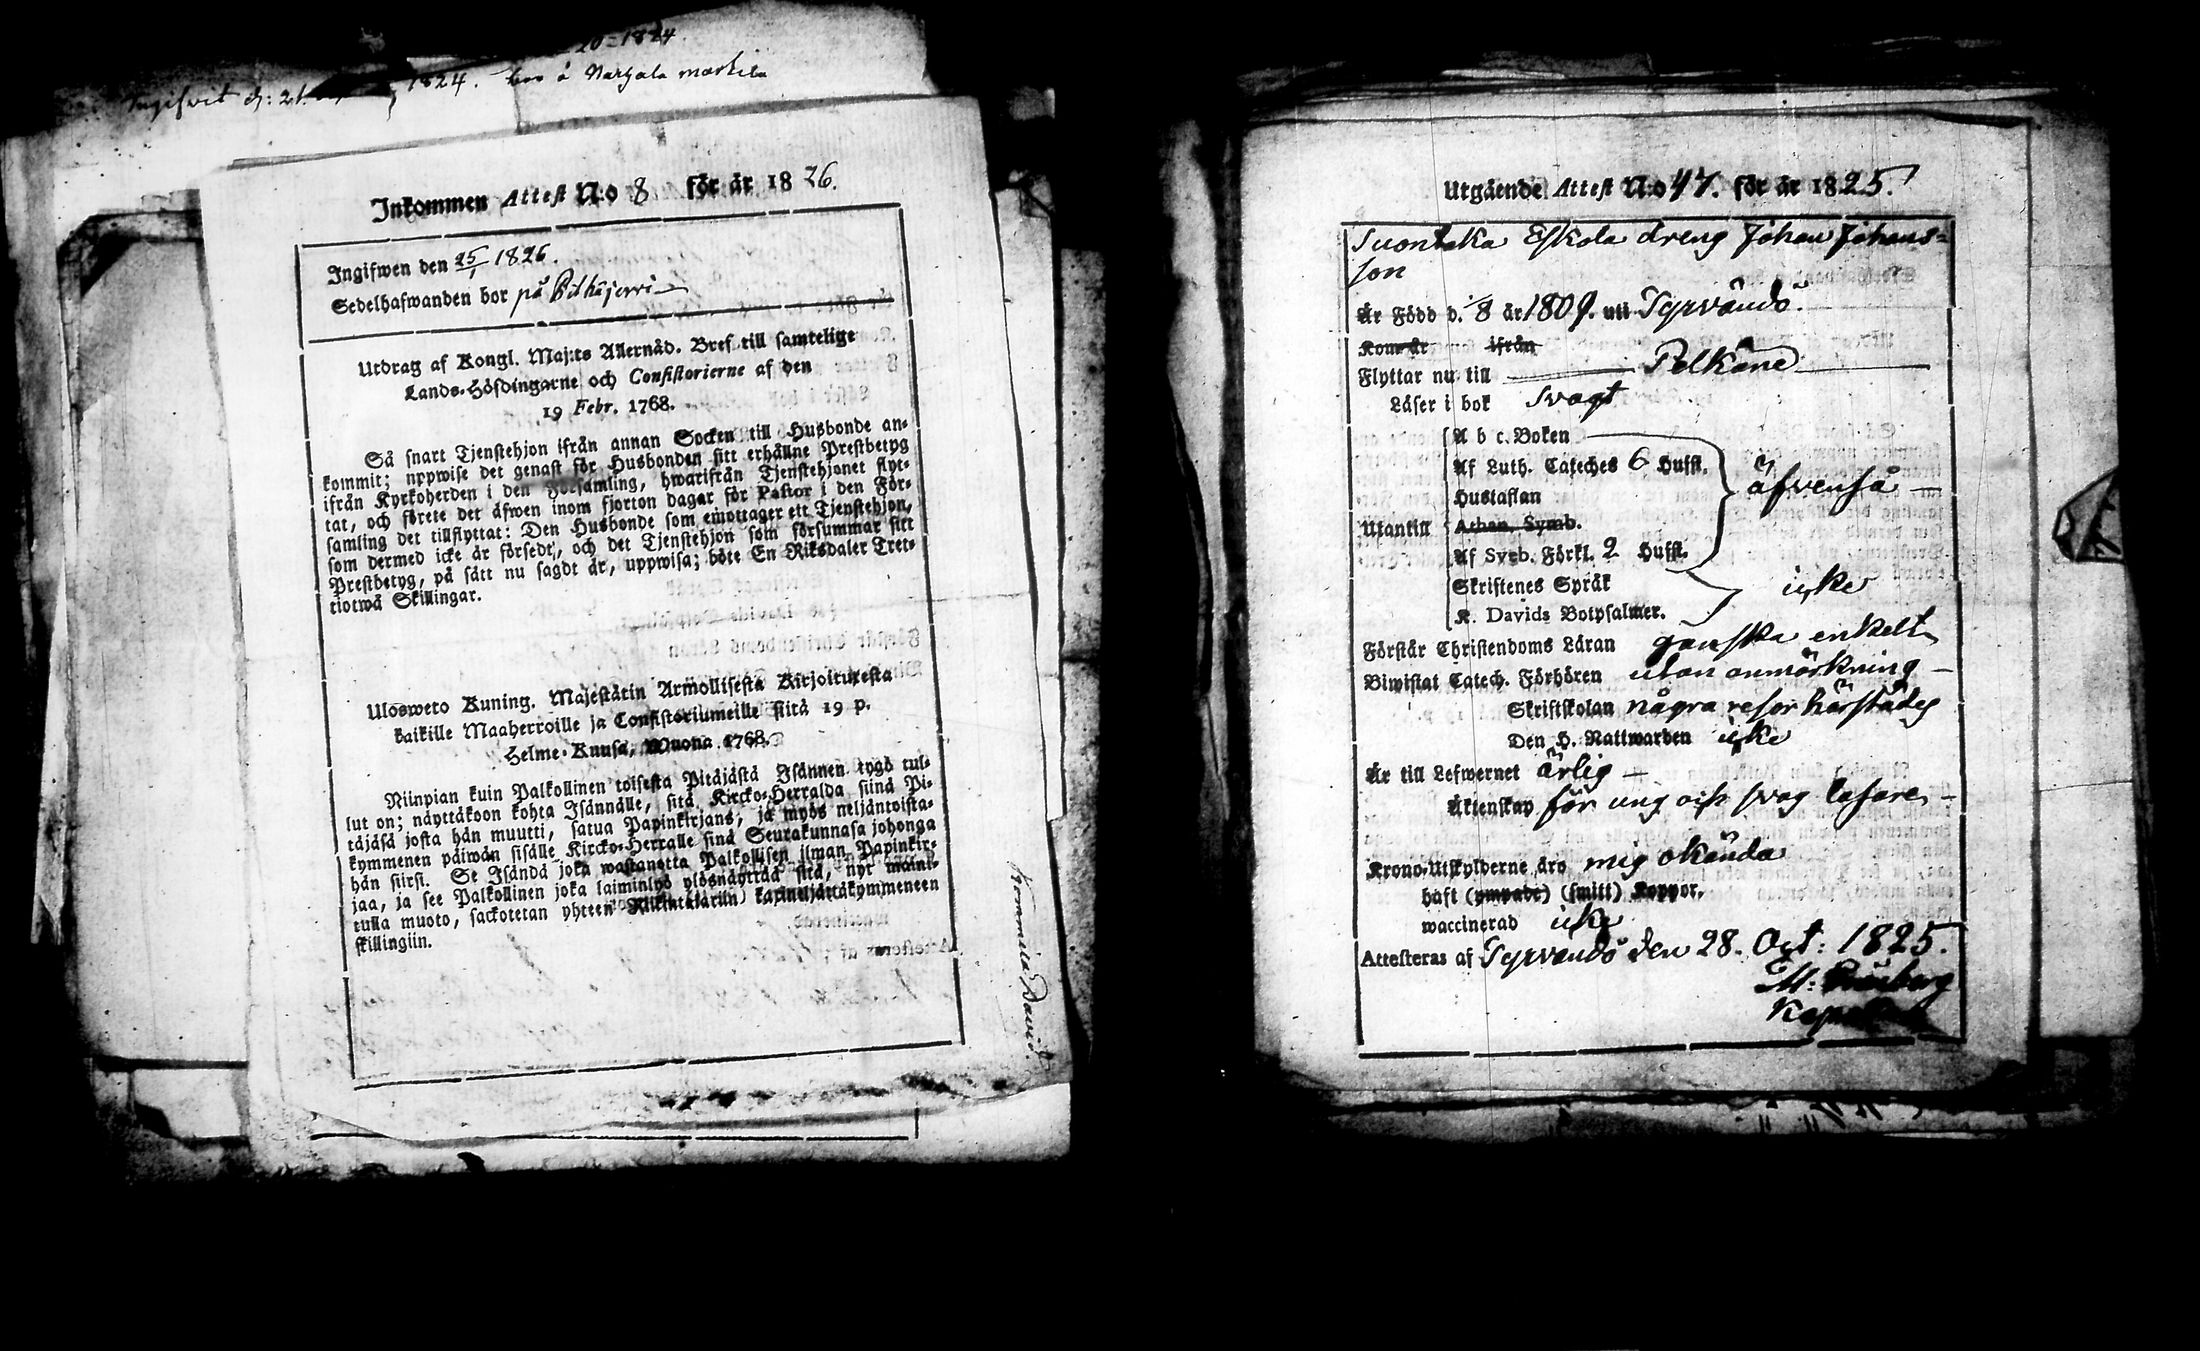 20 - 1824.
Ingifvit d: 21. 1824. bor å
Inkommen Attest N:o 8 för år 1826.
Ingifwen den 25/1 1826.
Sedelhafwanden bor på
Utdrag af Kongl. Maj:ts Allernåd. Bref till samtelige
Lands-Höfdingarne och Consistorierne af den
19 Febr. 1768.
Så snart Tjenstehjon ifrån annan Socken till Husbonde an-
kommit; uppwise det genast för Husbonden sitt erhållne Prestbetyg
ifrån Kyrkoherden i den Församling, hwarifrån Tjenstehjonet flyt-
tat, och förete det äfwen inom fjorton dagar för Pastor i den För-
samling det tillflyttat: Den Husbonde som emottager ett Tjenstehjon,
som dermed icke är försedt, och det Tjenstehjon som försummar sitt
Prestbetyg, på sätt nu sagdt är, uppwisa; böte En Riksdaler Tret-
tiotwå Skillingar.
Ulosweto Kuning. Majestätin Armollisesta Kirjoituxesta
kaikille Maaherroille ja Consistoriumeille siitä 19 p.
Helme-Kuusa, Wuona 1768.
Niinpian kuin Palkollinen toisesta Pitäjästä Isännen tygö tul-
lut on; näyttäkoon kohta Isännälle, sitä Kircko-Herralda siinä Pi-
täjäsä josta hän muutti, satua Papinkirjans, ja myös neljäntoista-
kymmenen päiwän sisälle Kircko-Herralle sinä Seurakunnasa johonga
hän siirsi. Se Isändä joka wastanotta Palkollisen ilman Papinkir-
jaa, ja see Palkollinen joka laiminlyö ylösnäyttää sitä, nyt maini-
tulla muoto, sackotetan yhteen Rikintalariin kaxineljättäkymmeneen
skillingiin.
David.
Utgående Attest N:o 47. för år 1825.
Suontaka Eskola dreng Johan Johans-
son
Är Född d. 8 år 1809. uti Tyrvändö.
Kom år ifrån
Flyttar nu till Pelkäne
Läser i bok svagt
A b c. Boken
Af Luth. Cateches 6 Hufst.
Hustaflan äfvenså
Utantill Athan. Symb.
Af Sveb. Förkl. 2 Hufst.
Skriftenes Språk icke
K. Davids Botpsalmer.
Förstår Christendoms Läran ganska enkelt
Biwistat Catech. Förhören utan anmärkning
Skriftskolan några resor härstädes
Den H. Nattwarden icke
Är till Lefwernet ärlig
Äktenskap för ung och svag läsare
Krono-Utskylderne äro mig okända
haft (ympade) (smitt) Koppor.
waccinerad icke
Attesteras af Tyrvändö den 28. Oct: 1825.